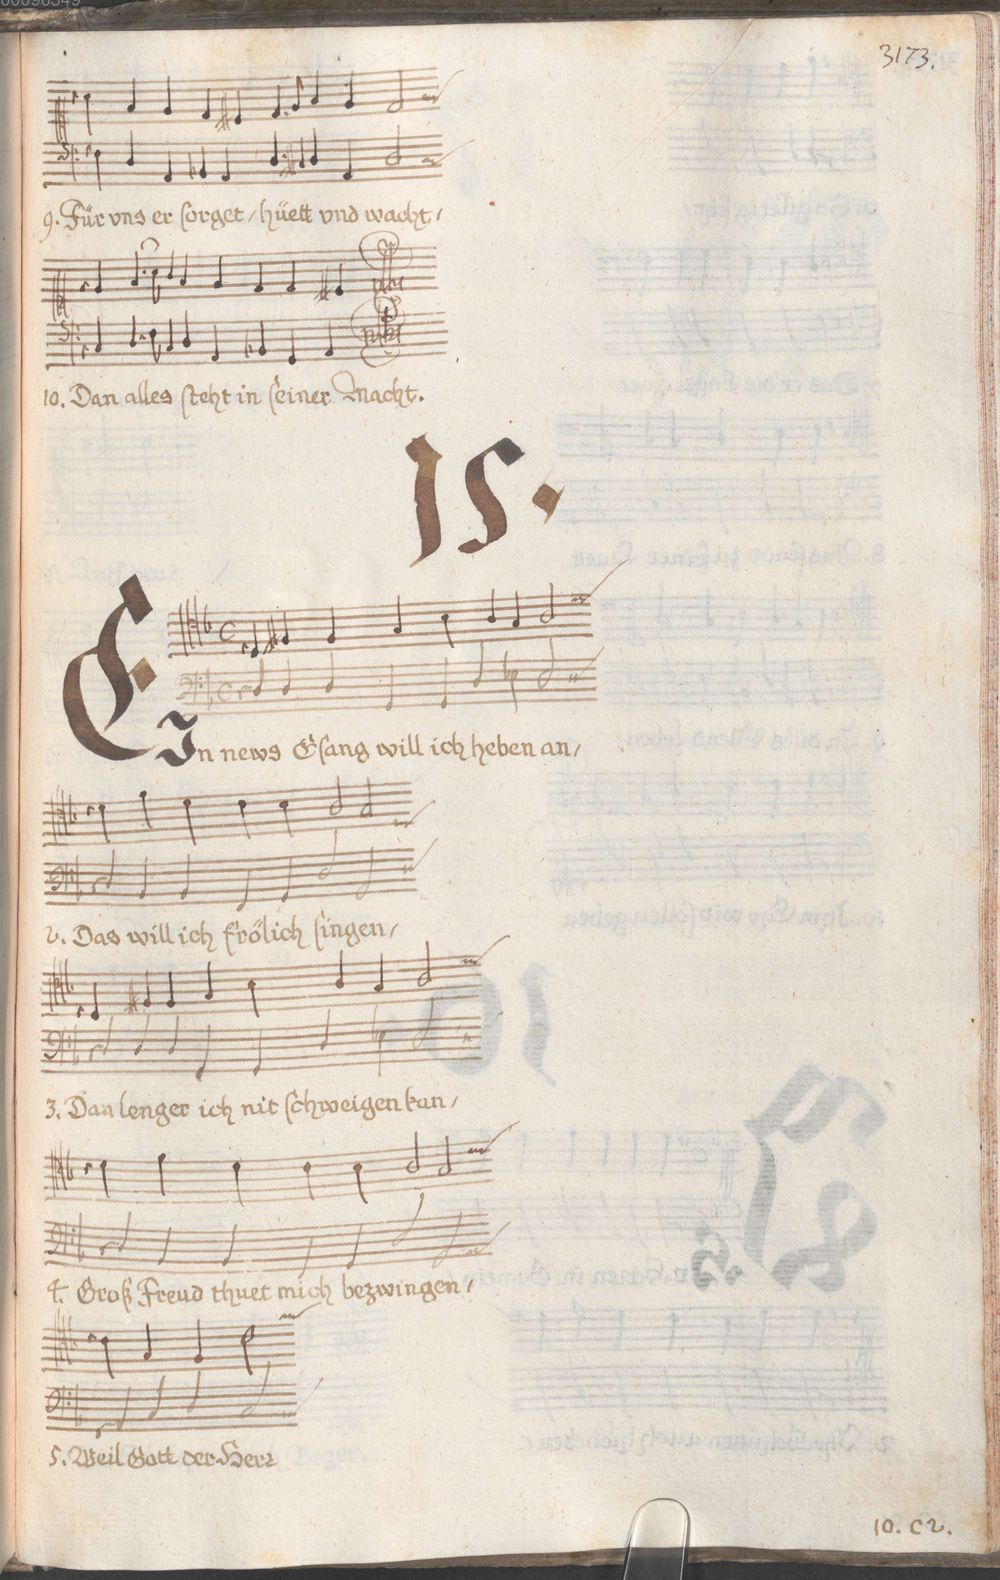 00096349
3173.
9. Für vns er sorget / hüett vnd wacht /
10. Dan alles steht in seiner Macht.
15.
EIn news Gsang will ich heben an /
2. Das will ich frölich singen /
3. Dan lenger ich nit schweigen kan /
4. Groß Freud thuet mich bezwingen /
5. Weil Gott der Herr
10. C2.